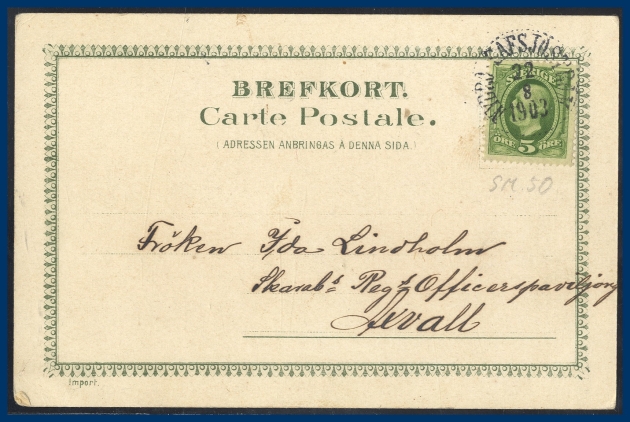 BREFKORT.
Carte Postale.
(ADRESSEN ANBRINGAS Å DENNA SIDA.)
22
8
1903
SVERIGE
ÖRE 5 ÖRE
SM. 50
Fröken Ida Lindholm
Skarab:s Reg:ts Officerspaviljong
Axvall
Import.